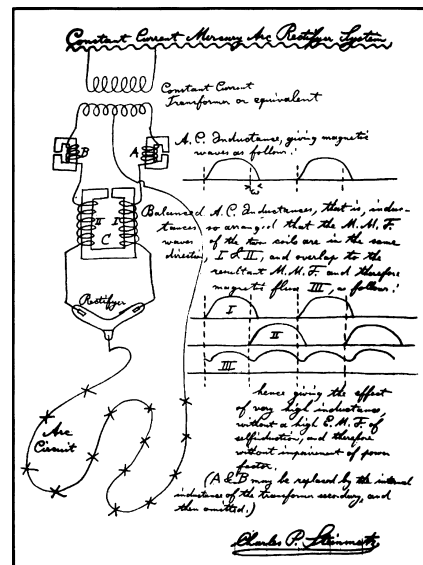 Constant Current Mercury Arc Rectifyer System
Constant Current
Transformer or equivalent
B
A
A.C. Inductance, giving magnetic
waves as follow:
II
I
C
Balanced A.C. Inductances, that is, induc-
tances so arranged that the M.M.F.
waves of the two coils are in the same
direction, I & II, and overlap to the
resultant M.M.F. and therefore
magnetic flux III, as follow:
Rectifyer
I
II
III
Arc
Circuit
hence giving the effect
of very high inductance,
without a high E.M.F. of
selfinduction, and therefore
without impairment of power
factor.
(A & B may be replaced by the internal
inductance of the transformer secondary, and
then omitted.)
Charles P. Steinmetz